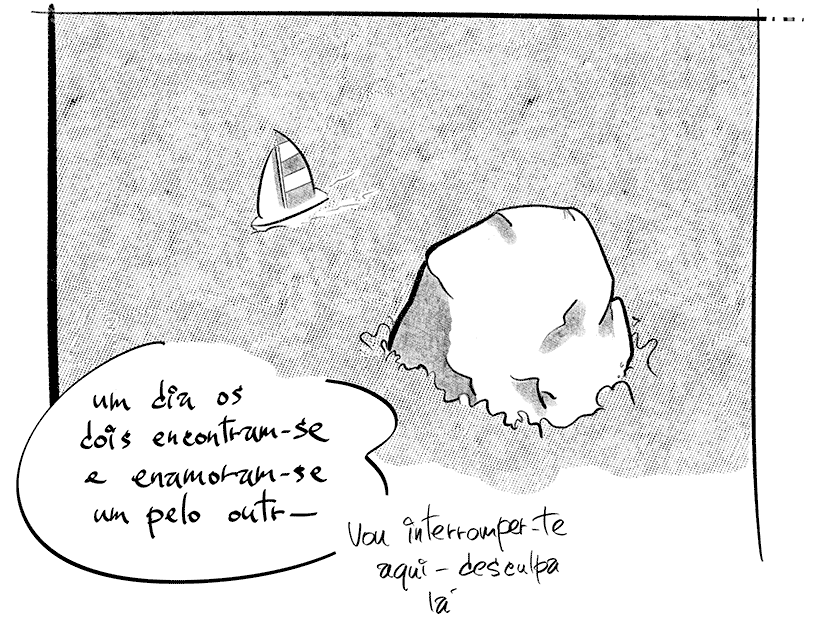 um dia os
dois encontram-se
e enamoram-se
um pelo outr—
Vou interromper-te
aqui – desculpa
lá